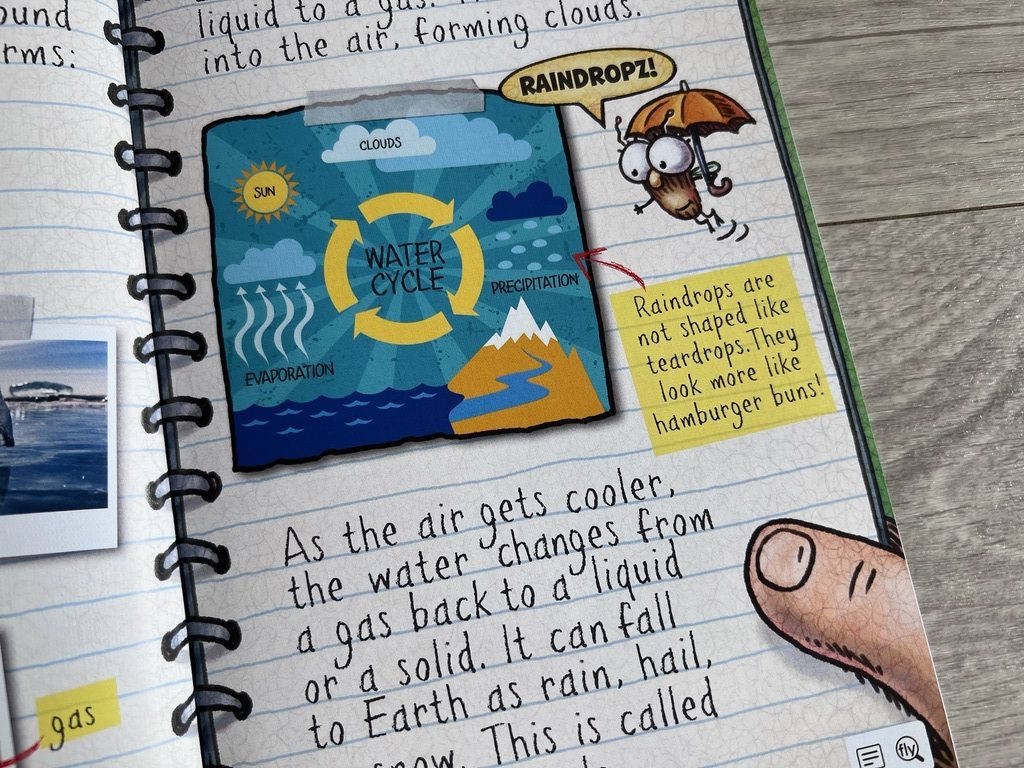 ound
rms:
gas
liquid to a gas.
into the air, forming clouds.
RAINDROPZ!
CLOUDS
SUN
WATER
CYCLE
PRECIPITATION
EVAPORATION
Raindrops are
not shaped like
teardrops. They
look more like
hamburger buns!
As the air gets cooler,
the water changes from
a gas back to a liquid
or a solid. It can fall
to Earth as rain, hail,
snow. This is called
fly